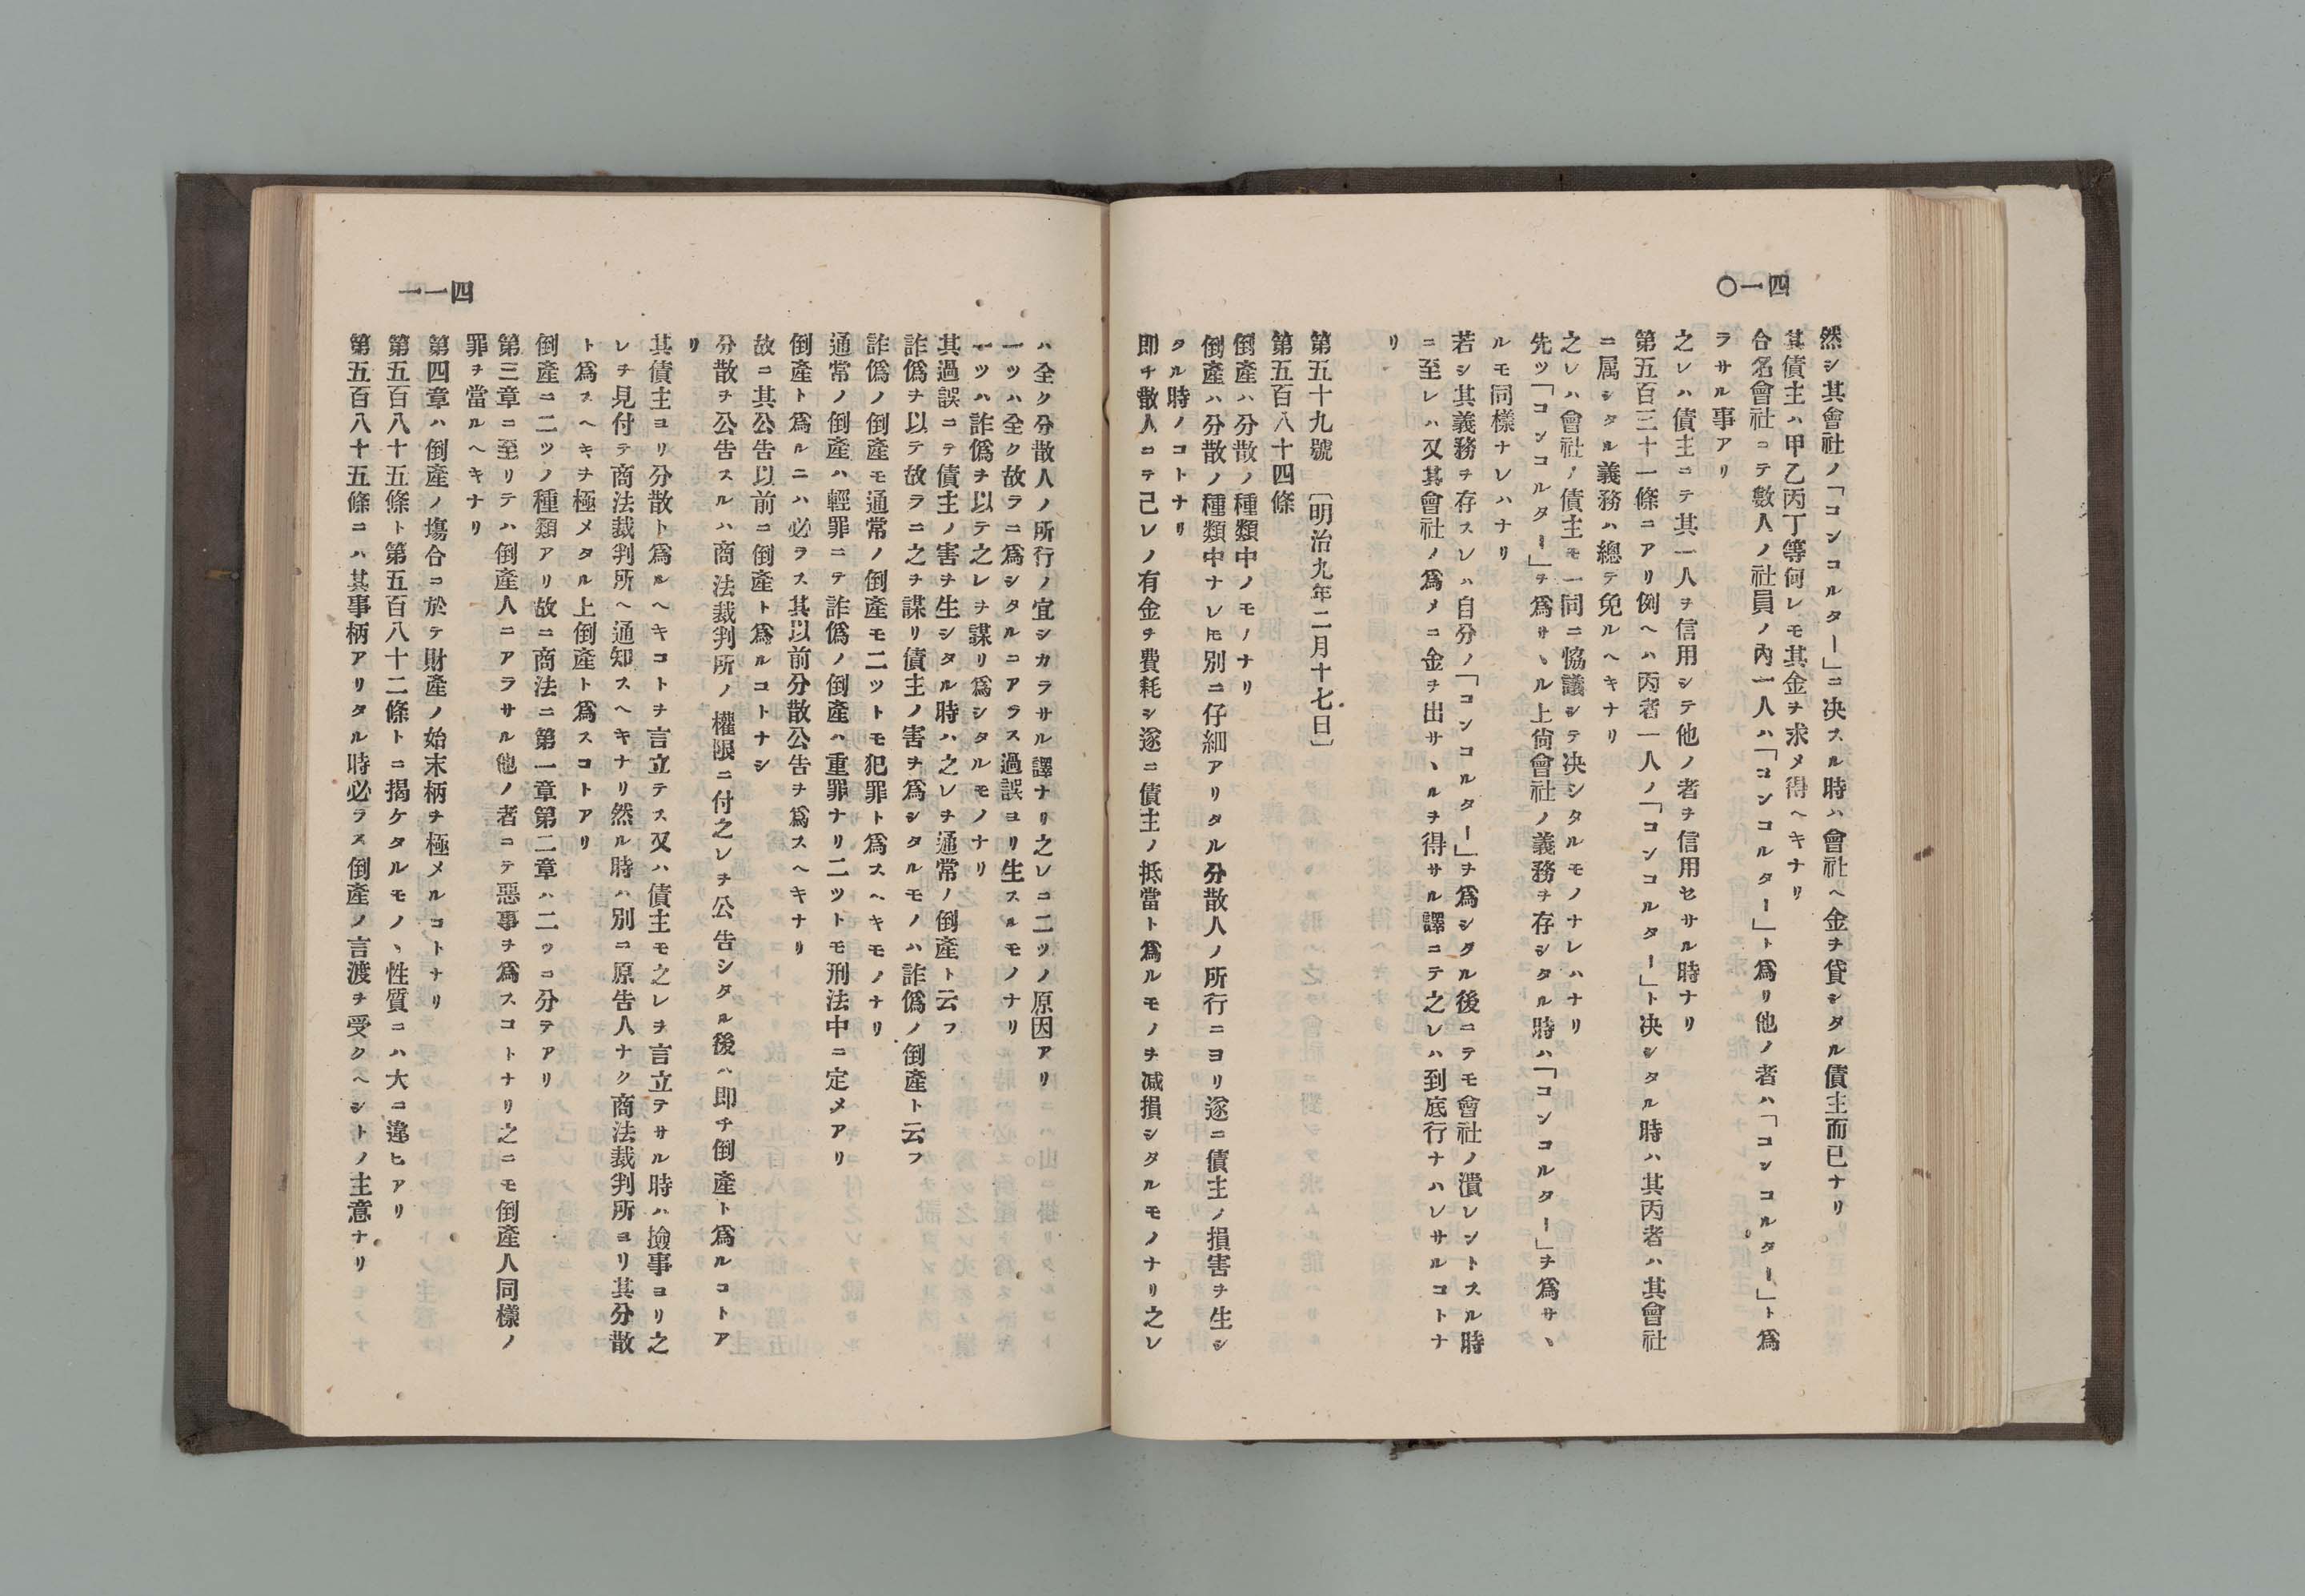 四一〇
然シ其會社ノ「コンコルター」ニ决スル時ハ會社ヘ金ヲ貸シタル債主而已ナリ
其債主ハ甲乙丙丁等何レモ其金ヲ求メ得ヘキナリ
合名會社ニテ數人ノ社員ノ內一人ハ「コンコルター」ト爲リ他ノ者ハ「コンコルター」ト爲
ラサル事アリ
之レハ債主ニテ其一人ヲ信用シテ他ノ者ヲ信用セサル時ナリ
第五百三十一條ニアリ例ヘハ丙者一人ノ「コンコルター」ト决シタル時ハ其丙者ハ其會社
ニ属シタル義務ハ總テ免ルヘキナリ
之レハ會社ノ債主モ一同ニ恊議シテ决シタルモノナレハナリ
先ツ「コンコルター」ヲ爲サヽル上尙會社ノ義務ヲ存シタル時ハ「コンコルター」ヲ爲サヽ
ルモ同樣ナレハナリ
若シ其義務ヲ存スレハ自分ノ「コンコルター」ヲ爲シタル後ニテモ會社ノ潰レントスル時
ニ至レハ又其會社ノ爲メニ金ヲ出サヽルヲ得サル譯ニテ之レハ到底行ナハレサルコトナ
リ
第五十九號　〔明治九年二月十七日〕
第五百八十四條
倒產ハ分散ノ種類中ノモノナリ
倒產ハ分散ノ種類中ナレモ別ニ仔細アリタル分散人ノ所行ニヨリ遂ニ債主ノ損害ヲ生シ
タル時ノコトナリ
即チ散人ニテ己レノ有金ヲ費耗シ遂ニ債主ノ抵當ト爲ルモノヲ減損シタルモノナリ之レ
四一一
ハ全ク分散人ノ所行ノ宜シカラサル譯ナリ之レニ二ツノ原因アリ
一ツハ全ク故ラニ爲シタルニアラス過誤ヨリ生スルモノナリ
一ツハ詐僞ヲ以テ之レヲ謀リ爲シタルモノナリ
其過誤ニテ債主ノ害ヲ生シタル時ハ之レヲ通常ノ倒產ト云フ
詐僞ヲ以テ故ラニ之ヲ謀リ債主ノ害ヲ爲シタルモノハ詐僞ノ倒產ト云フ
詐僞ノ倒產モ通常ノ倒產モ二ツトモ犯罪ト爲スヘキモノナリ
通常ノ倒產ハ輕罪ニテ詐僞ノ倒產ハ重罪ナリ二ツトモ刑法中ニ定メアリ
倒產ト爲ルニハ必ラス其以前分散公告ヲ爲スヘキナリ
故ニ其公告以前ニ倒產ト爲ルコトナシ
分散ヲ公告スルハ商法裁判所ノ權限ニ付之レヲ公告シタル後ハ即チ倒產ト爲ルコトア
リ
其債主ヨリ分散ト爲ルヘキコトヲ言立テス又ハ債主モ之レヲ言立テサル時ハ撿事ヨリ之
レヲ見付テ商法裁判所ヘ通知スヘキナリ然ル時ハ別ニ原告人ナク商法裁判所ヨリ其分散
ト爲スヘキヲ極メタル上倒產ト爲スコトアリ
倒產ニ二ツノ種類アリ故ニ商法ニ第一章第二章ハ二ッニ分テアリ
第三章ニ至リテハ倒產人ニアラサル他ノ者ニテ惡事ヲ爲スコトナリ之ニモ倒產人同樣ノ
罪ヲ當ルヘキナリ
第四章ハ倒產ノ塲合ニ於テ財產ノ始末柄ヲ極メルコトナリ
第五百八十五條ト第五百八十二條トニ揭ケタルモノヽ性質ニハ大ニ違ヒアリ
第五百八十五條ニハ其事柄アリタル時必ラス倒產ノ言渡ヲ受クヘシトノ主意ナリ